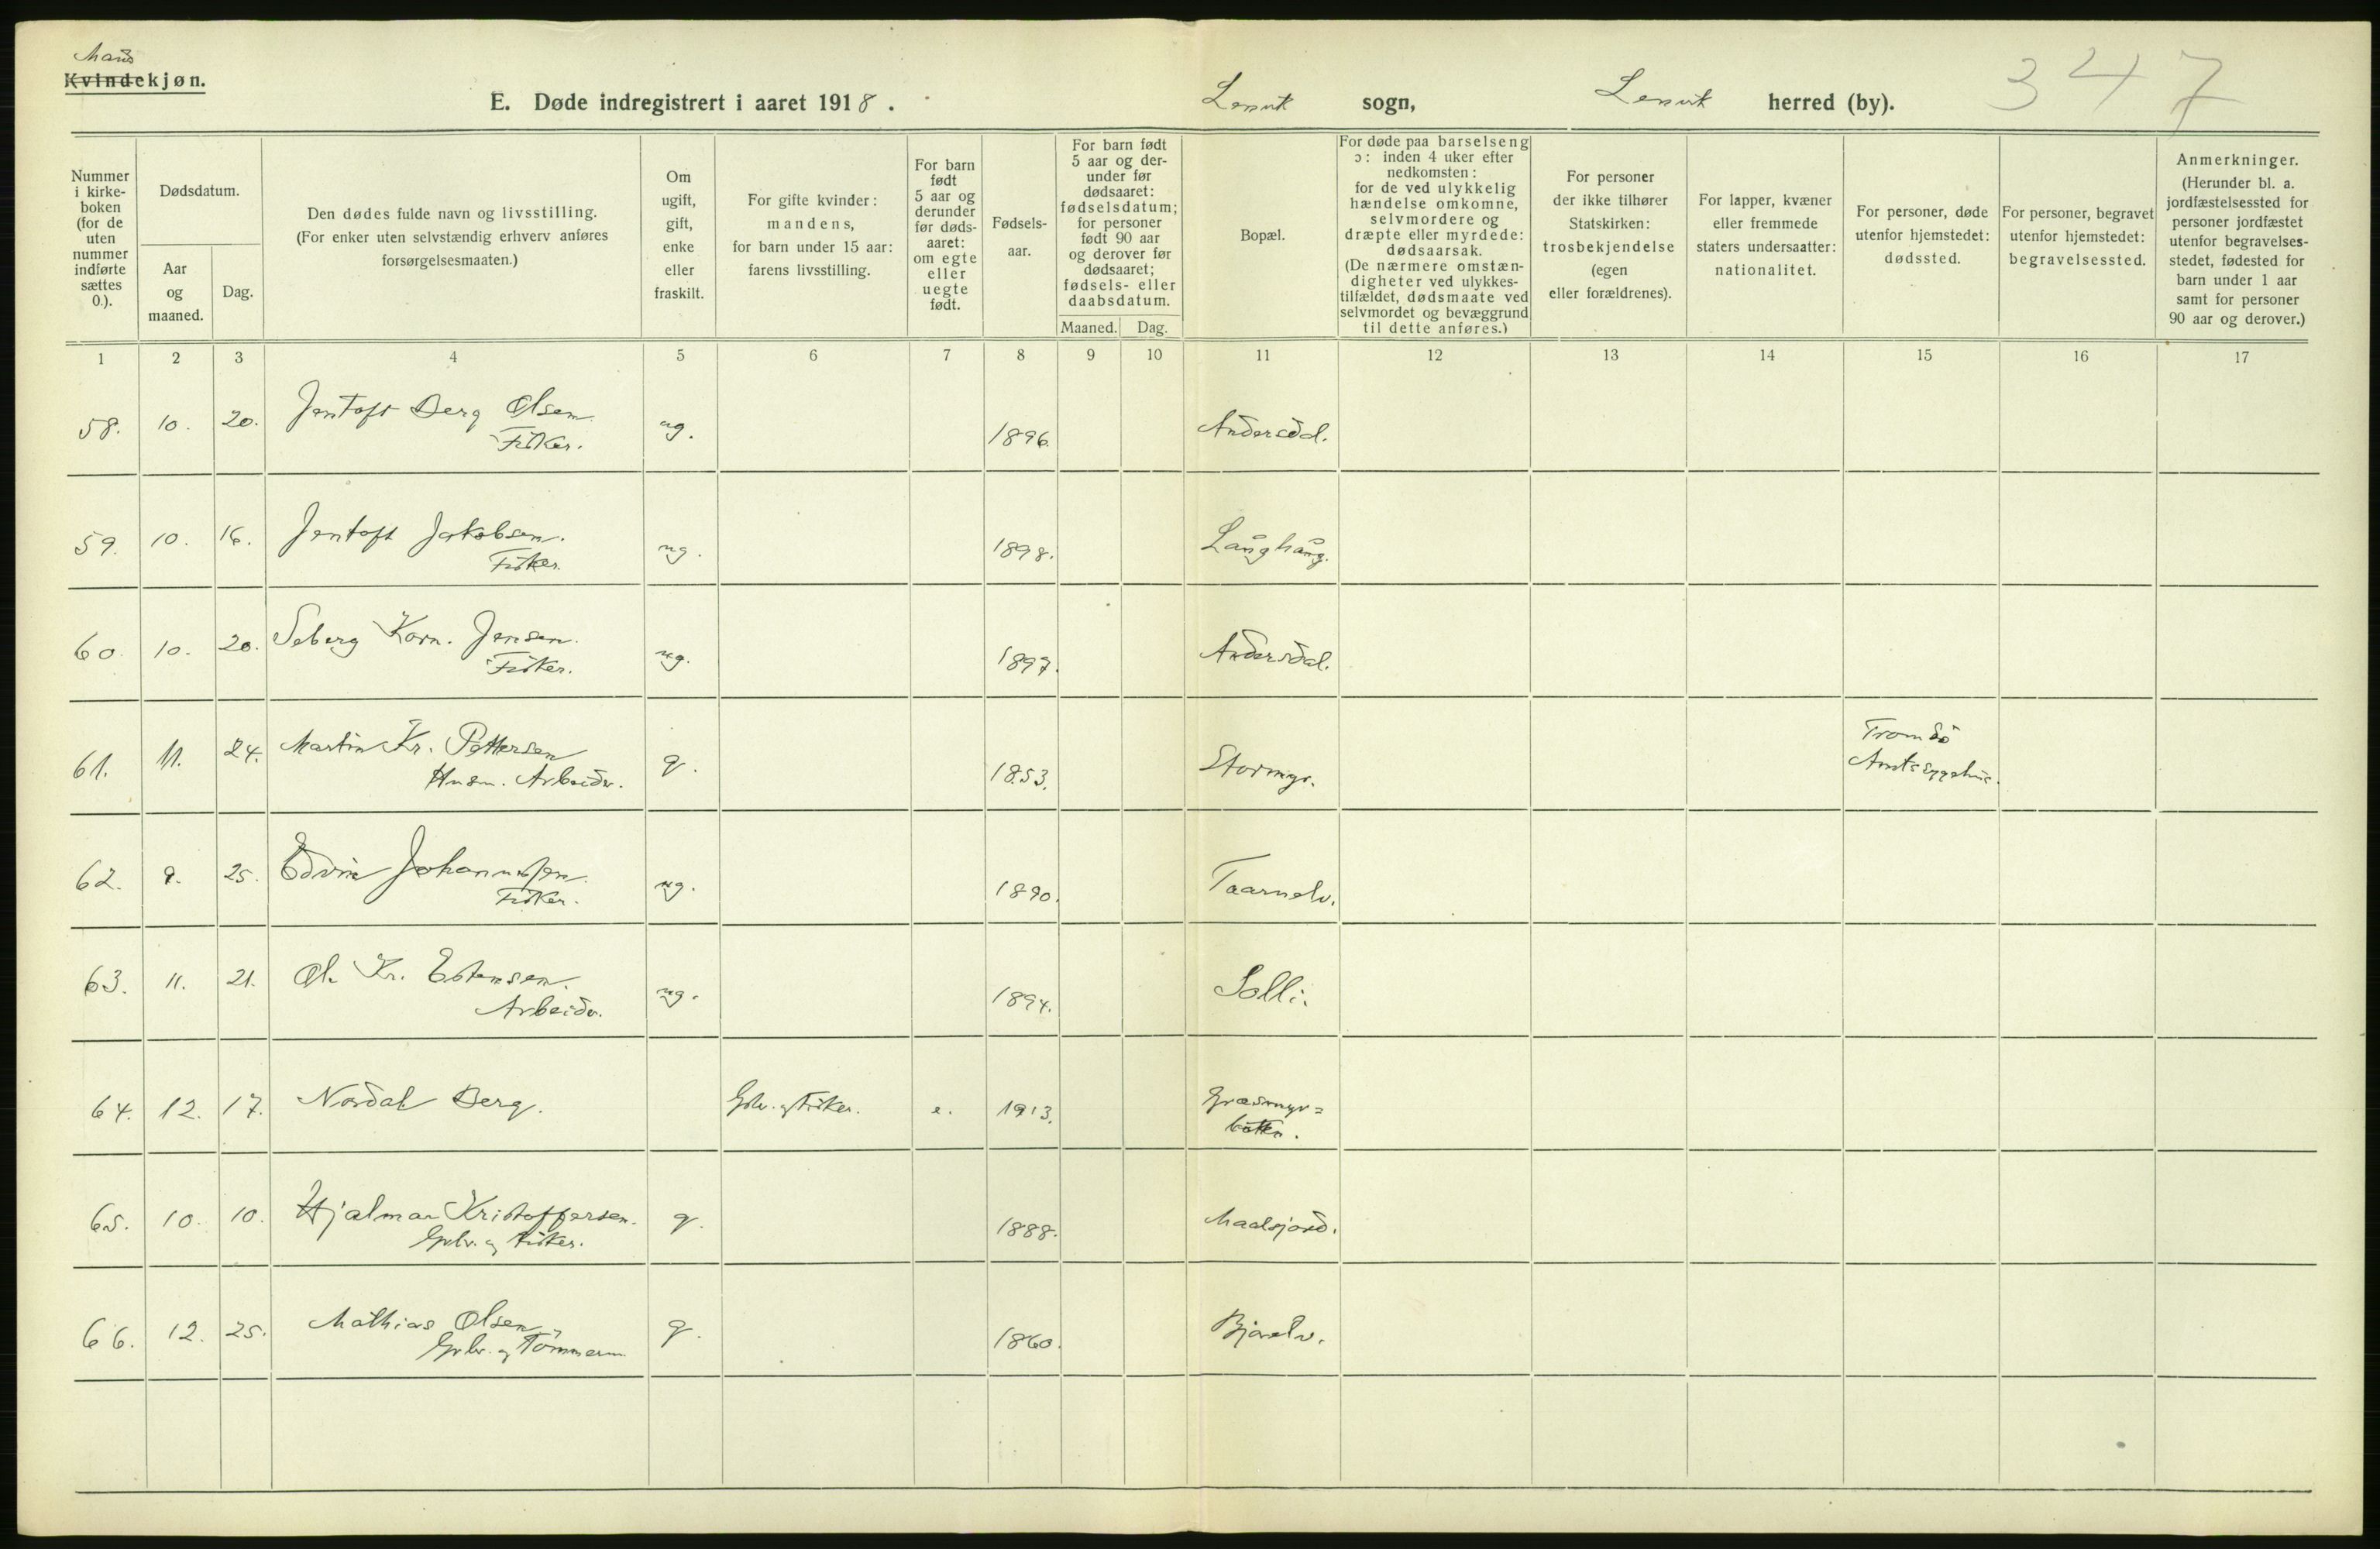 Mands
Kvindekjøn.
E. Døde indregistrert i aaret 1918.
Lenvik sogn, Lenvik herred (by).
347
Nummer
i kirke-
boken
(for de
uten
nummer
indførte
sættes
0.).
Dødsdatum.
Aar
og
maaned.
Dag.
Den dødes fulde navn og livsstilling.
(For enker uten selvstændig erhverv anføres
forsørgelsesmaaten.)
Om
ugift,
gift,
enke
eller
fraskilt.
For gifte kvinder:
mandens,
for barn under 15 aar:
farens livsstilling.
For barn
født
5 aar og
derunder
før døds-
aaret:
om egte
eller
uegte
født.
Fødsels-
aar.
For barn født
5 aar og der-
under før
dødsaaret:
fødselsdatum;
for personer
født 90 aar
og derover før
dødsaaret;
fødsels- eller
daabsdatum.
Maaned. Dag.
Bopæl.
For døde paa barselseng
ɔ: inden 4 uker efter
nedkomsten:
for de ved ulykkelig
hændelse omkomne,
selvmordere og
dræpte eller myrdede:
dødsaarsak.
(De nærmere omstæn-
digheter ved ulykkes-
tilfældet, dødsmaate ved
selvmordet og bevæggrund
til dette anføres.)
For personer
der ikke tilhører
Statskirken:
trosbekjendelse
(egen
eller forældrenes).
For lapper, kvæner
eller fremmede
staters undersaatter:
nationalitet.
For personer, døde
utenfor hjemstedet:
dødssted.
For personer, begravet
utenfor hjemstedet:
begravelsessted.
Anmerkninger.
(Herunder bl. a.
jordfæstelsessted for
personer jordfæstet
utenfor begravelses-
stedet, fødested for
barn under 1 aar
samt for personer
90 aar og derover.)
1 2 3 4 5 6 7 8 9 10 11 12 13 14 15 16 17
58. 10. 20. Jentoft Berg Olsen ug. 1896. Andersdal.
Fisker.
59. 10. 16. Jentoft Jakobsen. ug. 1898. Langhaug.
Fisker.
60. 10. 20. Seberg Korn. Jensen. ug. 1897. Andersdal.
Fisker.
61. 11. 24. Martin Kr. Pettersen g. 1853. Stormyr. Tromsö
Husm. Arbeider. Amtssygehus.
62. 9. 25. Edvin Johannessen. ug. 1890. Taarnelv.
Fisker.
63. 11. 21. Ol. Kr. Estensen. ug. 1894. Solli.
Arbeider.
64. 12. 17. Nordal Berg. Gbr. og Fisker. e. 1913. Græsmyr=
botten.
65. 10. 10. Hjalmar Kristoffersen. g. 1888. Maalsjord.
Gbr. og Fisker.
66. 12. 25. Mathias Olsen g. 1860. Bjorelv.
Gbr. og Tömmerm.